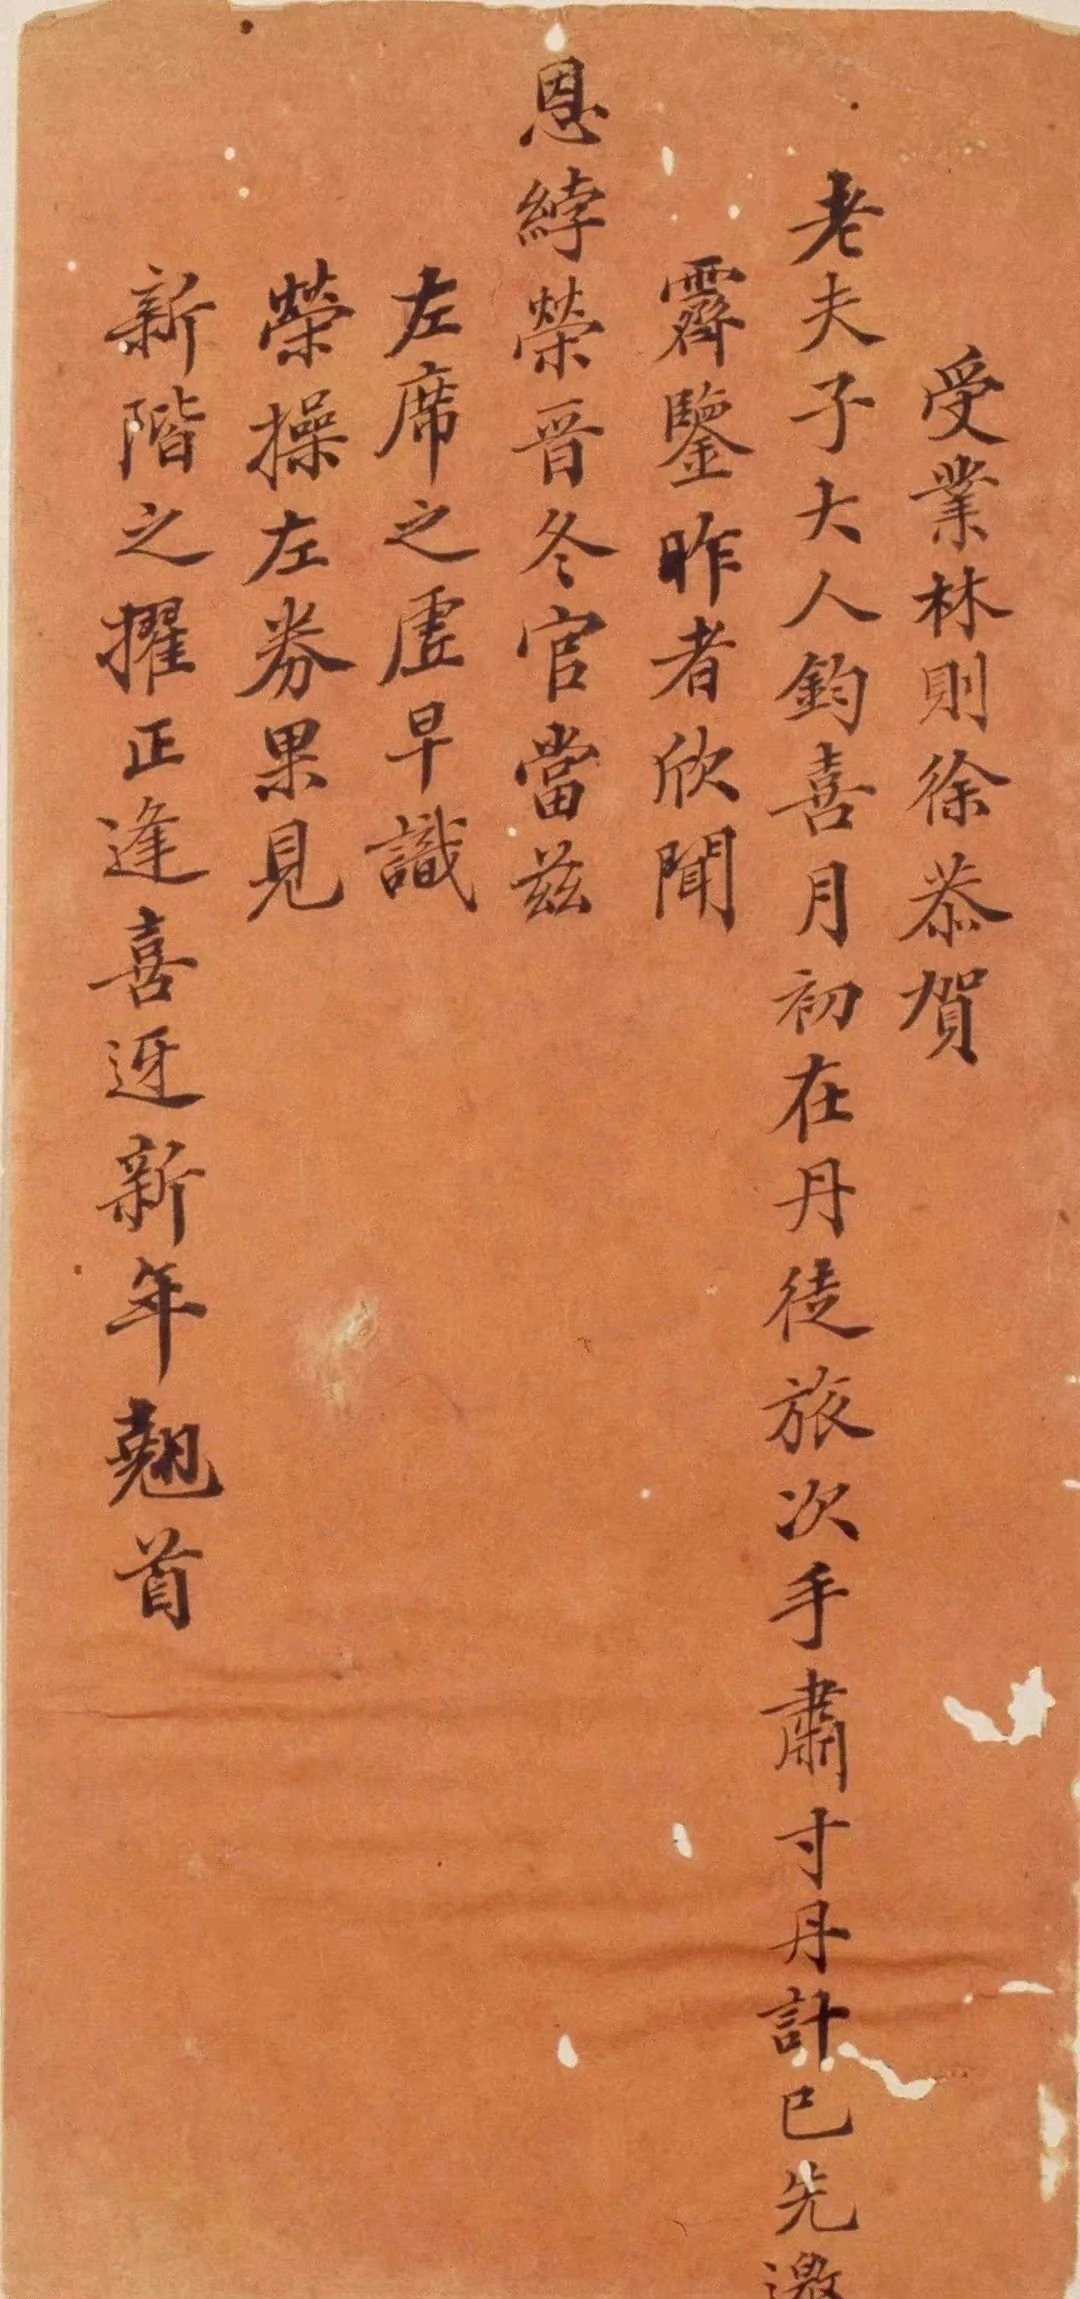 受業林則徐恭賀
老夫子大人鈞喜月初在丹徒旅次手肅寸丹計已先邀
霽鑒昨者欣聞
恩綍榮晉冬官當茲
左席之虛早識
榮操左券果見
新階之擢正逢喜迓新年翹首